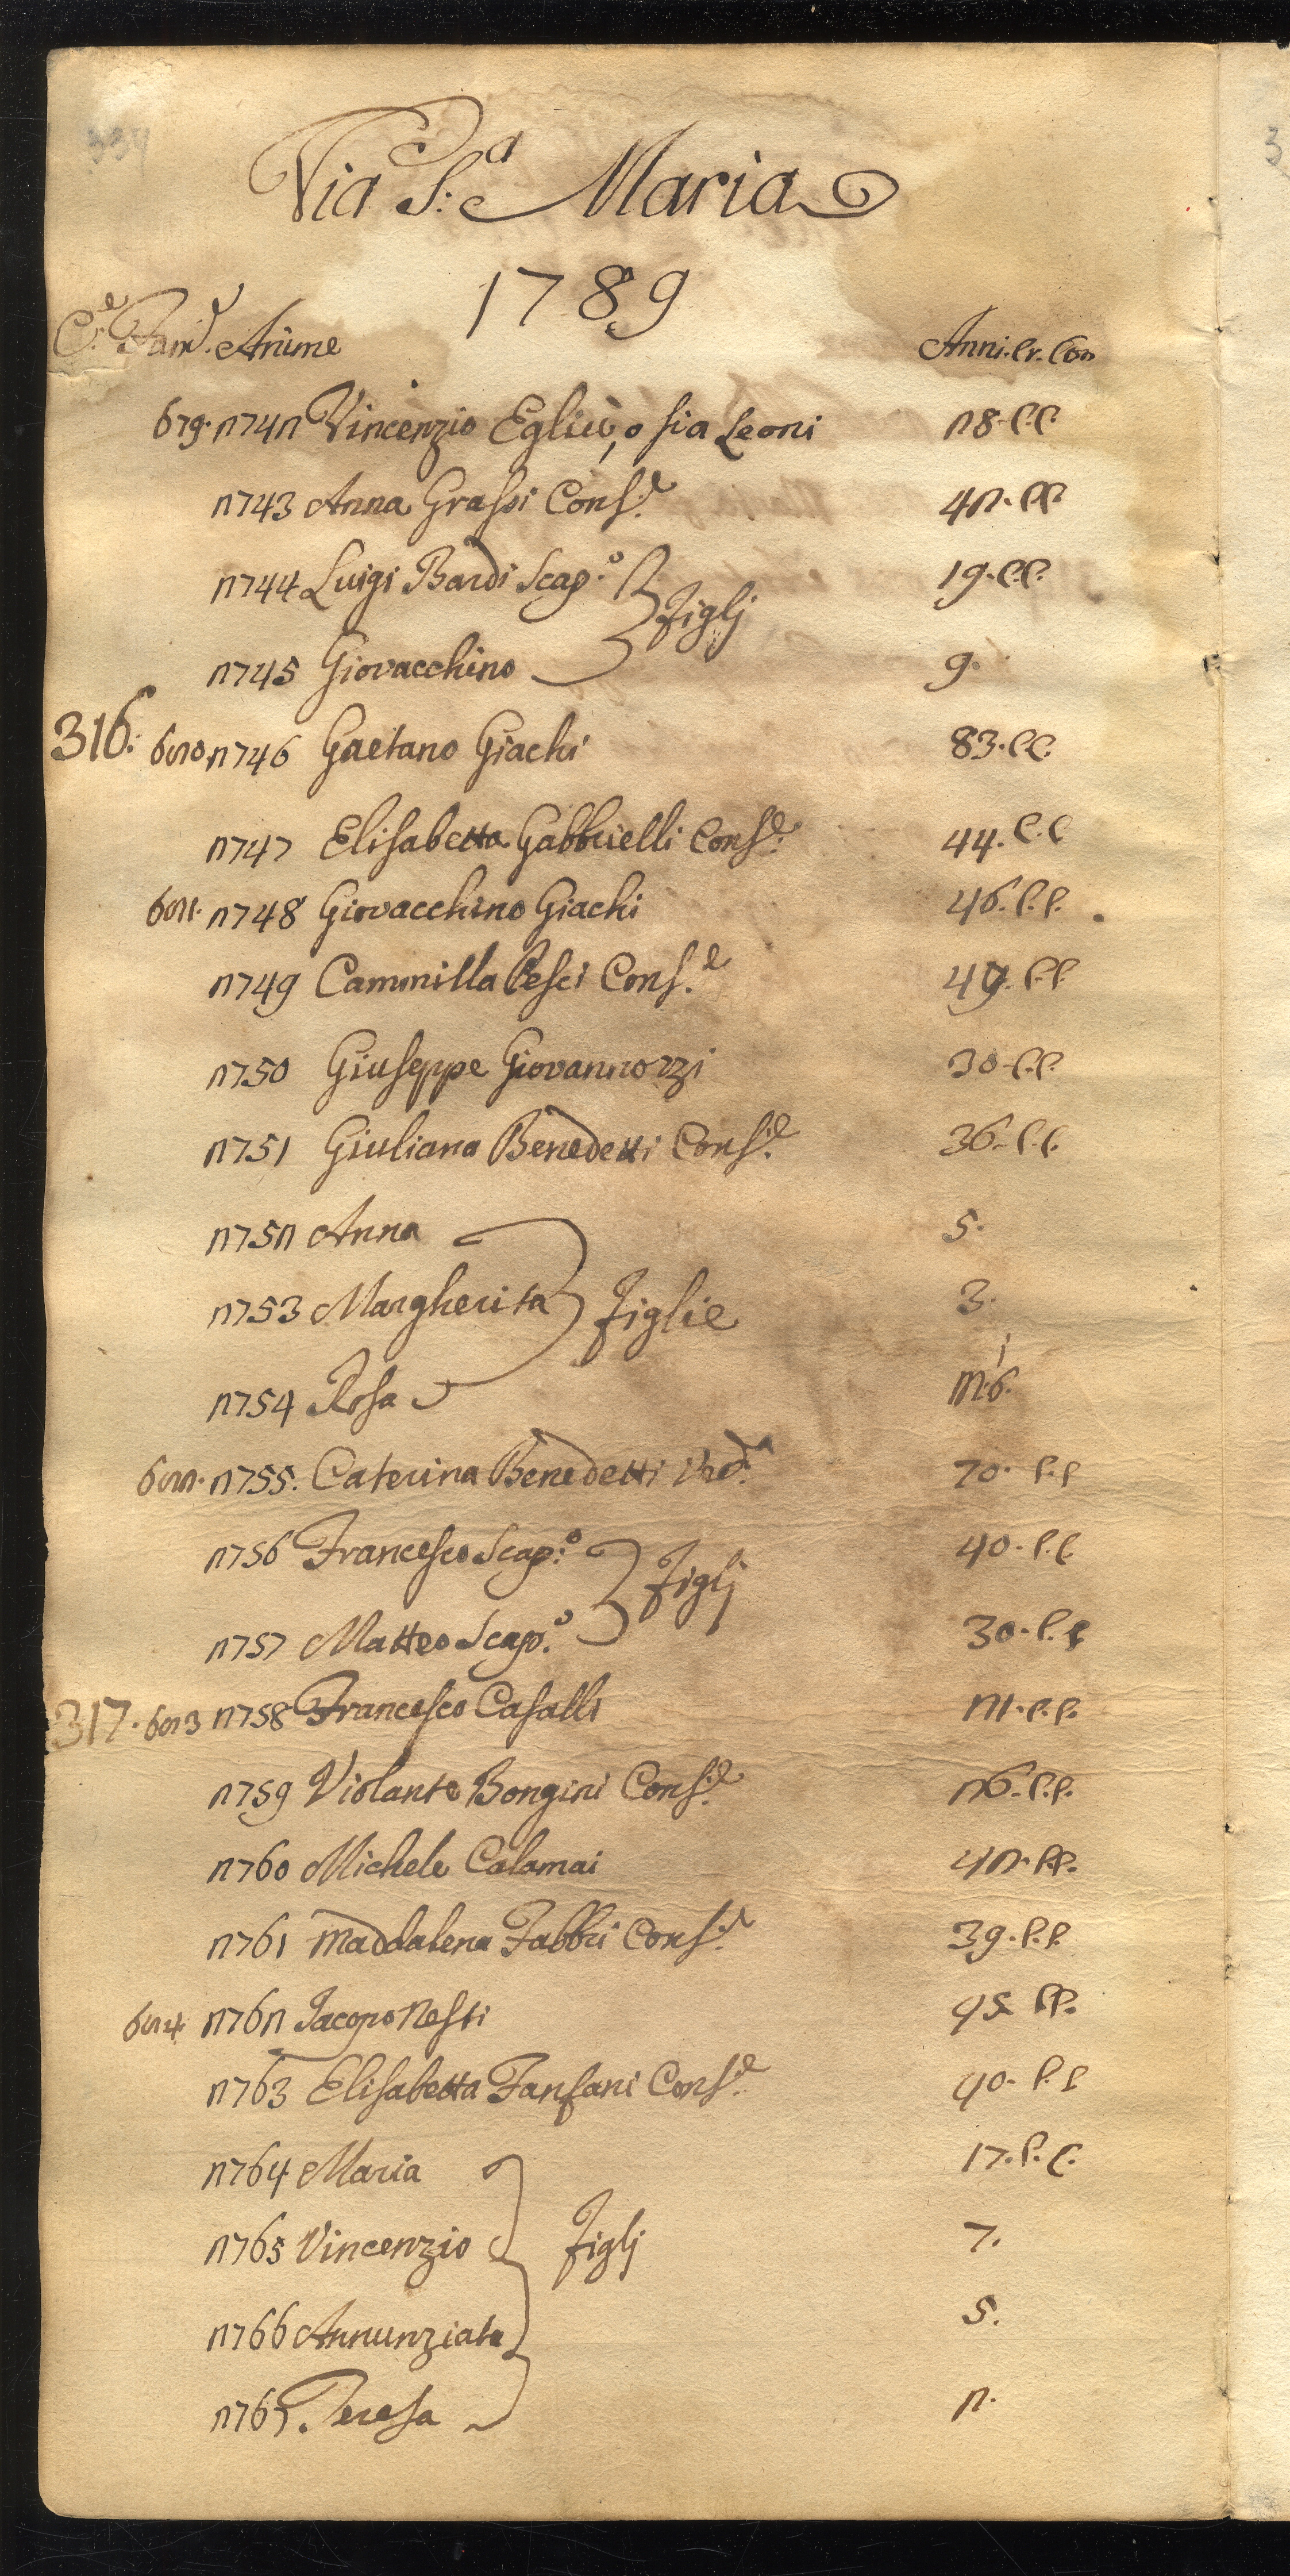 334
Via S:ª Maria
1789
C.e Fam.e Anime Anni. Cr. Con
619. 2742 Vincenzio Egliù, o sia Leoni 28. C.C.
2743 Anna Grassi Cons.e 42. C.C.
2744 Luigi Bardi Scap.o 19. C.C.
Figlj
2745 Giovacchino 9.
316. 620. 2746 Gaetano Giachi 83. C.C.
2747 Elisabetta Gabbrielli Cons.e 44. C.C
621. 2748 Giovacchino Giachi 46. C.C.
2749 Cammilla Pesci Cons.e 49. C.C
2750 Giuseppe Giovannozzi 30. C.C.
2751 Giuliana Benedetti Cons.e 36. C.C.
2752 Anna 5.
2753 Margherita Figlie 3.
2754 Rosa m.i 6.
622. 2755. Caterina Benedetti Ved.a 70. C.C
2756 Francesco Scap.o 40. C.C
Figlj
2757 Matteo Scap.o 30. C.C
317. 623 2758 Francesco Casalli 21. C.C.
2759 Violante Bongini Cons.e 26. C.C.
2760 Michele Calamai 42. C.C.
2761 Maddalena Fabbri Cons.e 39. C.C.
624. 2762 Jacopo Nesti 45 C.C.
2763 Elisabetta Fanfani Cons.e 40. C.C
2764 Maria 17. C.C.
2765 Vincenzio Figlj 7.
2766 Annunziata 5.
2767. Teresa 2.